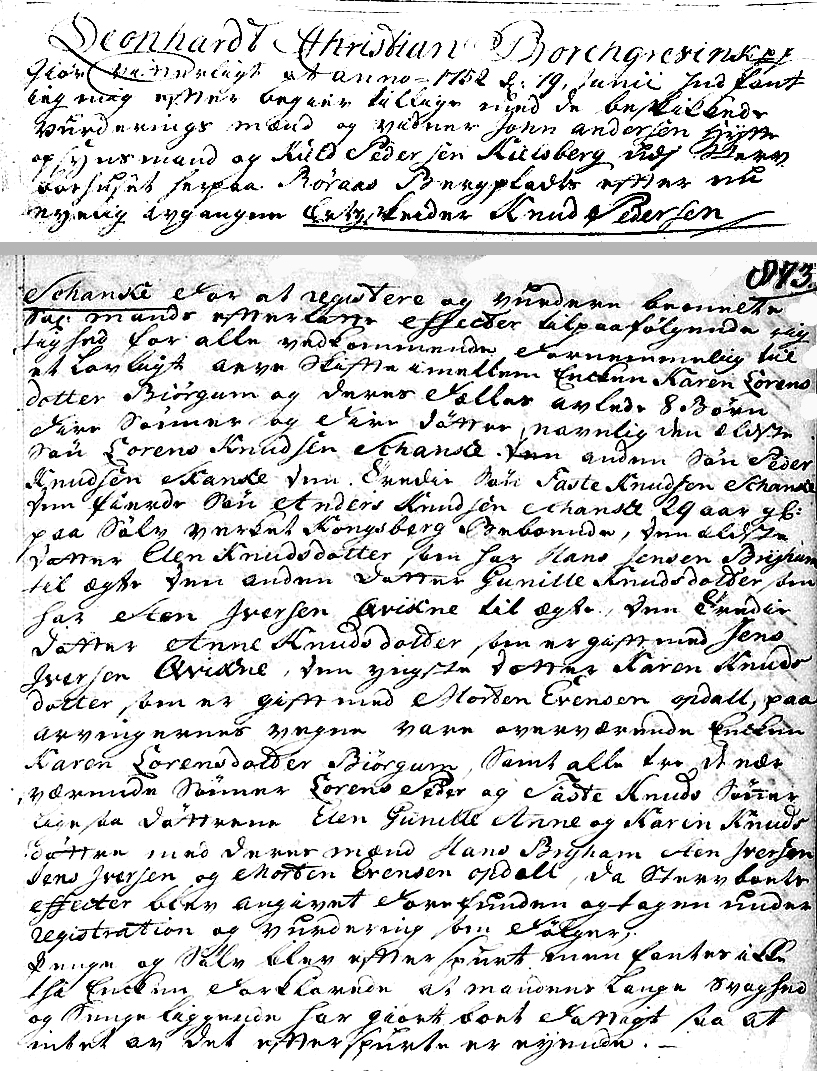 Leonhardt Christian Borchgrevink p p
Giör vitterligt at anno 1752 d: 19. Junii Indfant
ieg mig efter begier tillige med de bestillede
vurderings mænd og vidner John andersen hytte
opsyns mand og Kield Pedersen Kielsberg udj Sterv
boehuset herpaa Röraas Bergpladts efter nu
nyelig avgangene Knud Pedersen
873.
Schanke For at registere og vurdere bemelte
Sal: mands efterlatte effecter til paafølgende rig
tighed for alle vedkommende Fornemmelig til
et Lovligt arve Skifte imellem Encken Karen Lorens
dotter Biörgum og deres Fælles avlede 8 Börn
Fire Sönner og Fire dötter, navnlig den ældste
Sön Lorens Knudsen Schanke. den anden Sön Peder
Knudsen Skanke den tredie Sön Taste Knudsen Schanke
den fierde Sön Anders Knudsen Schanke 29 aar g:
paa Sölv verket Kongsberg Beboende, den ældste
datter Elen Knudsdotter, som har Hans Jensen Brigham
til ægte den anden datter Gunille Knudsdotter som
har Sten Iversen Qvikne til ægte, den tredie
datter Anne Knudsdotter, som er gift med Jens
Iversen Qvikne, den yngste dotter Karen Knuds
dotter, som er gift med Morten Evensen opdall, paa
arvingernes vegne vare overværende Encken
Karen Lorensdotter Biörgum, Samt alle tre de nær
værende Sönner Lorens Peder og Taste Knuds Sönner
ligesaa döttrene Elen Gunille Anne og Karen Knuds
döttre med deres mænd Hans Brigham Sten Iversen
Jens Iversen og Morten Evensen opdall, da Sterv boets
effecter blev angivet Forefunden og tagen under
registration og vurdering som Fölger,
Penge og Sölv blev efterspurt men fantes icke
thi Encken Forklarede at mandens Lange Svaghed
og Senge liggende har giort boet Fattigt saa at
intet av det efterspurte er eyende.